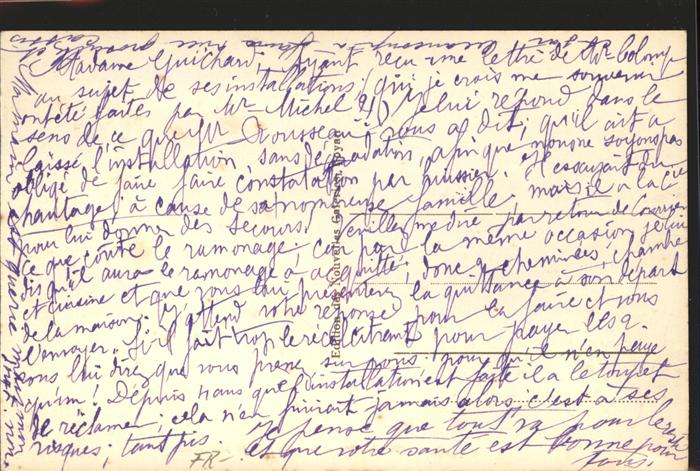 Madame Guichard, Ayant reçu une lettre de Mr Colomp
au sujet de ses installations, (qui je crois me souvenir
ont été faites par Mr Michel ?) Je lui répond dans le
sens de ce que Mr Rousseau vous a dit, qu'il ait a
laissé l'installation, sans dégradations, afin que nous ne soyons pas
obligé de faire faire constatation par huissier. Il essayait du
chantage, à cause de sa nombreuse famille, mais il a la Cie
pour lui donner des secours. Veuillez me dire par retour de Courrier
ce que coûte le ramonage, car par la même occasion, je lui
dis qu'il aura le ramonage à acquitter, donc 2 cheminées, chambre
et cuisine et que vous lui présenterez la quittance à son départ
de la maison. J'attend votre réponse pour la faire et vous
l'envoyer. S'il fait trop le récalcitrant pour payer les 2.
vous lui direz que vous prenez sur vous pour qu'il n'en paye
qu'un! Depuis 11 ans que l'installation est faite il a le toupet
de réclamer; cela n'en finirait jamais alors c'est à ses
risques; tant pis. Je pense que tout va pour le reste
et que votre santé est bonne pour
tous.
Editions des Nouvelles Galeries,
FR